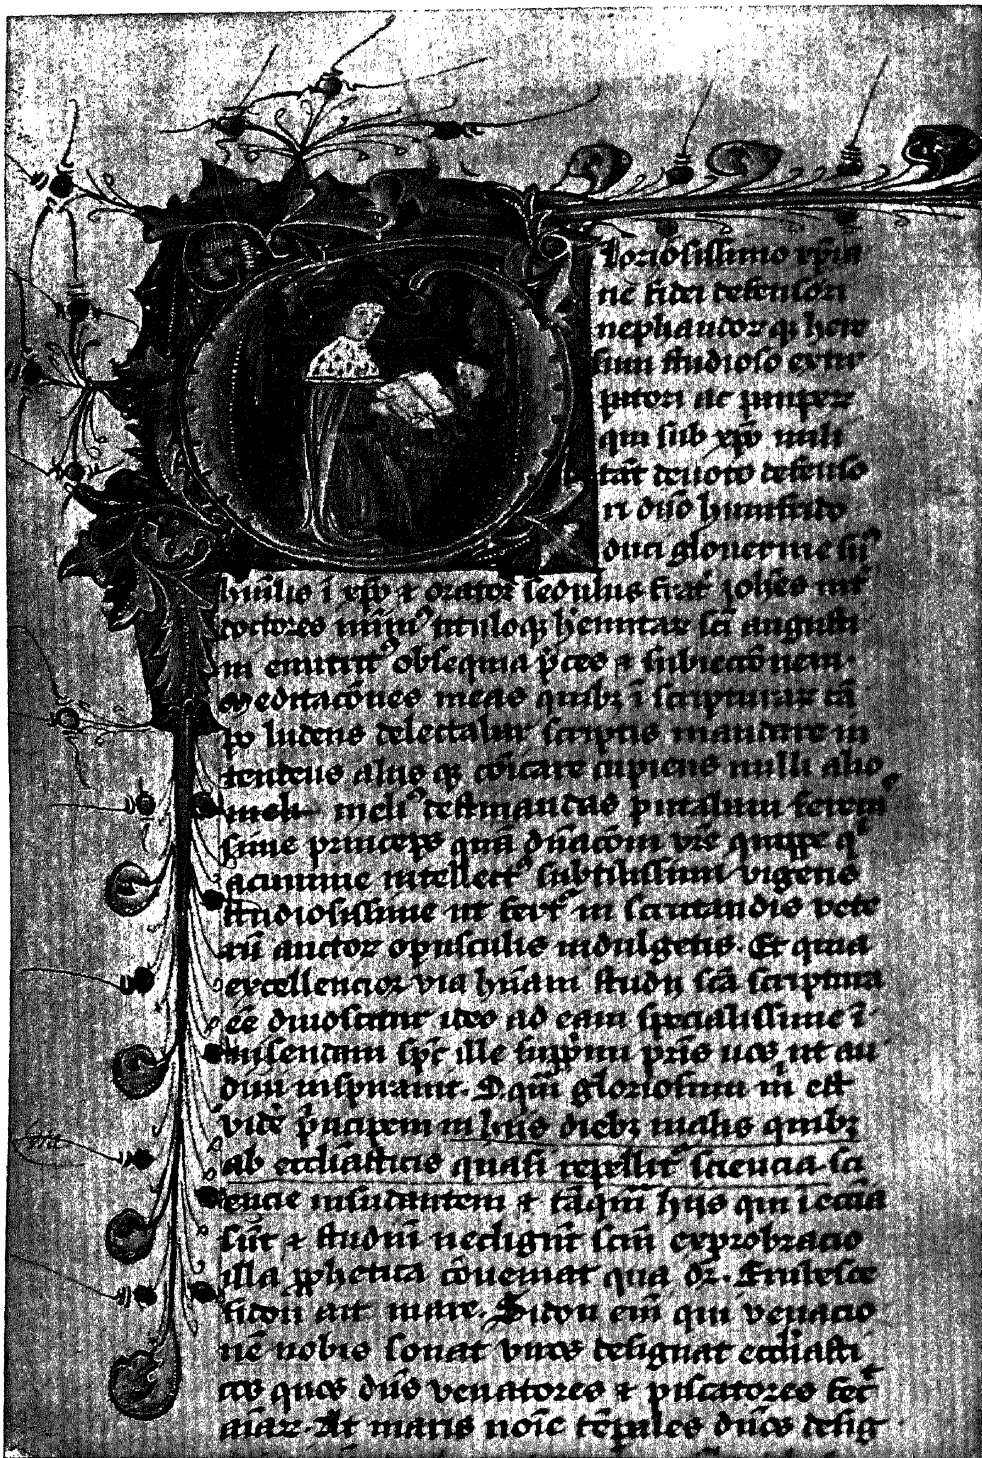 loriosissimo xp̄ia
ne fidei defensori
nephandorq; here
sum studioso extir
patori ac pauper
qui sub xp̄o mili
tāt deuoto defenso
ri dn̄o humfrido
duci glouernie su⁹
humilis i xp̄o ⁊ orator sedulus frat̄ joh̄es int̄
doctores mīm⁹ tituloq; hēmitar sc̄i augusti
ni obsequia p̄ces ⁊ subieccōnem.
Meditacōnes meas quibȝ ī scripturar cā
po ludens delectabar scriptis mandare in
tendens aliis q; cōicare cupiens nulli alio
meli⁹ destinandas putabam sereni
sime princeps quā dn̄acōni vr̄e quippe q̄
acumine intellect⁹ subtilissimi vigens
studiosissime ut fert̄ in scrutandis vete
rū auctor opusculis indulgetis. Et quia
excellencior via hūani studij sc̄a scriptura
eē dinoscitur ideo ad eam specialissime ī
sp̄c ille supp̄mi pr̄is uos ut au
diui inspirauit. gloriosum est
vidē p̄ncipem in hiis diebȝ malis quibȝ
ab eccliasticis quasi repellit̄ sciencia sci
encie insudantem ⁊ tāqm̄ hijs qui
sūt ⁊ studiū necligūt exprobracio
illa p̄phetica cōueniat qua dr̄. Erubesce
sidon ait mare. Sidon eni qui venacio
nē nobis sonat viros designat eccliasti
cos quos dn̄s venatores ⁊ piscatores fec̄
aiār. At maris noīe tēp̄ales dn̄os desig